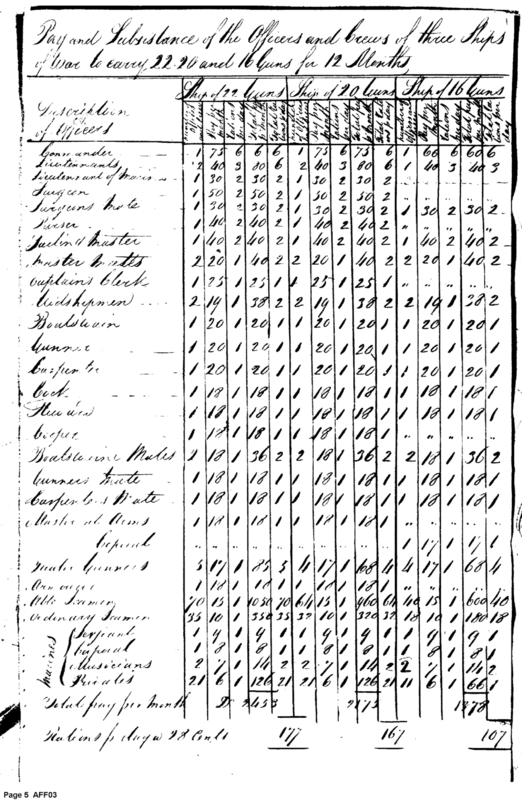 Pay and Subsistance of the Officers and Crews of three Ships
of War to carry 22. 20 and 16 Guns for 12 Months
Ship of 22 Guns Ship of 20 Guns Ship of 16 Guns
Description
of Officers
Commander 1 75 6 6 6 1 75 6 75 6 1 60 6 60 6
Lieutennants 2 40 3 80 6 2 40 3 80 6 1 40 3 40 3
Lieutennant of Marines 1 30 2 30 2 1 30 2 30 2
Surgeon 1 50 2 50 2 1 50 2 50 2
Surgeons Mate 1 30 2 30 2 1 30 2 30 2 1 30 2 30 2
Purser 1 40 2 40 2 1 40 2 40 2 " " " " "
Sailing Master 1 40 2 40 2 1 40 2 40 2 1 40 2 40 2
Master Mates 2 20 1 40 2 2 20 1 40 2 2 20 1 40 2
Captains Clerk 1 25 1 25 1 1 25 1 25 1
Midshipmen 2 19 1 38 2 2 19 1 38 2 2 19 1 38 2
Boatswain 1 20 1 20 1 1 20 1 20 1 1 20 1 20 1
Gunner 1 20 1 20 1 1 20 1 20 1 1 20 1 20 1
Carpenter 1 20 1 20 1 1 20 1 20 1 1 20 1 20 1
Cook 1 18 1 18 1 1 18 1 18 1 1 18 1 18 1
Steward 1 18 1 18 1 1 18 1 18 1 1 18 1 18 1
Cooper 1 18 1 18 1 1 18 1 18 1 " " " " "
Boatswains Mates 2 18 1 36 2 2 18 1 36 2 2 18 1 36 2
Gunners Mate 1 18 1 18 1 1 18 1 18 1 1 18 1 18 1
Carpenters Mate 1 18 1 18 1 1 18 1 18 1 1 18 1 18 1
Master at Arms 1 18 1 18 1 1 18 1 18 1
Corporal 1 17 1 17 1
Quarter Gunners 5 17 1 85 5 4 17 1 68 4 4 17 1 68 4
Armourer 1 18 1 18 1 1 18 1 18 1
Able Seamen 70 15 1 1050 70 64 15 1 960 64 40 15 1 600 40
Ordinary Seamen 35 10 1 350 35 32 10 1 320 32 18 10 1 180 18
Marines
Serjeant 1 9 1 9 1 1 9 1 9 1 1 9 1 9 1
Corporal 1 8 1 8 1 1 8 1 8 1 1 8 1 8 1
Musicians 2 7 1 14 2 2 7 1 14 2 2 7 1 14 2
Privates 21 6 1 126 21 21 6 1 126 21 11 6 1 66 1
Total pay per Month 2453 1378
Rations p day a 28 Cents 177 167 107
Page 5 AFF03